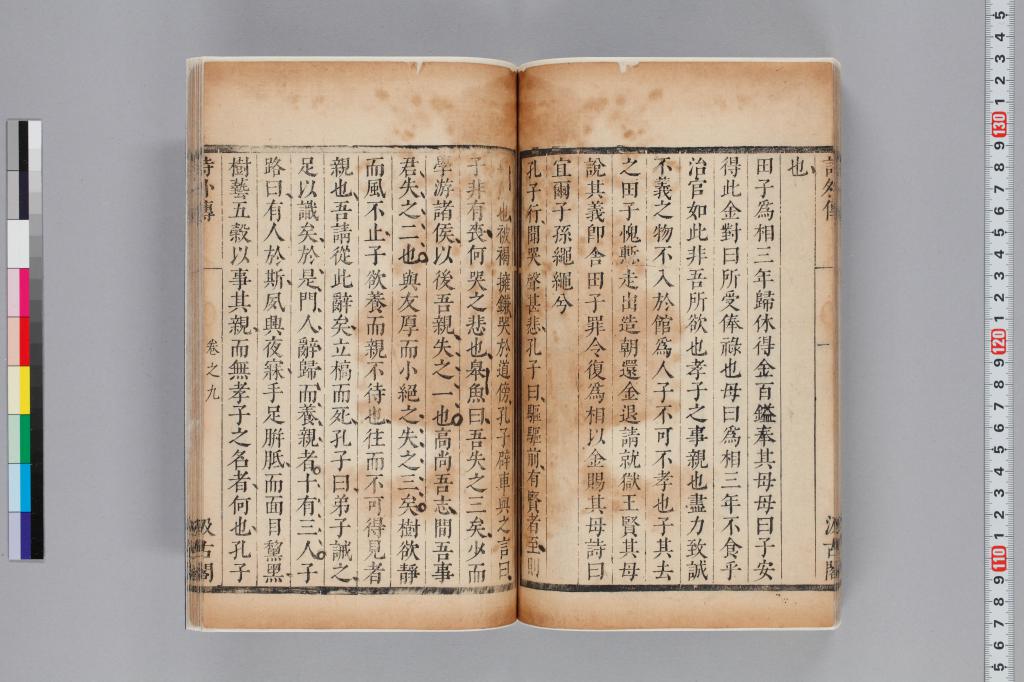 詩外傳 一 汲古閣
也
田子爲相三年歸休得金百鎰奉其母母曰子安
得此金對曰所受俸祿也母曰爲相三年不食乎
治官如此非吾所欲也孝子之事親也盡力致誠
不義之物不入於館爲人子不可不孝也子其去
之田子愧慙走出造朝還金退請就獄王賢其母
說其義卽舍田子罪令復爲相以金賜其母詩曰
宜爾子孫繩繩兮
孔子行聞哭聲甚悲孔子曰驅驅前有賢者至則
也被褐擁鐮哭於道傍孔子辟車與之言曰
子非有喪何哭之悲也皋魚曰吾失之三矣少而
學游諸侯以後吾親失之一也高尚吾志間吾事
君失之二也與友厚而小絕之失之三矣樹欲靜
而風不止子欲養而親不待也往而不可得見者
親也吾請從此辭矣立槁而死孔子曰弟子誡之
足以識矣於是門人辭歸而養親者十有三人子
路曰有人於斯夙興夜寐手足胼胝而面目黧黑
樹藝五穀以事其親而無孝子之名者何也孔子
詩外傳 卷之九 汲古閣
5 4 3 2 1 130 9 8 7 6 5 4 3 2 1 120 9 8 7 6 5 4 3 2 1 110 9 8 7 6 5